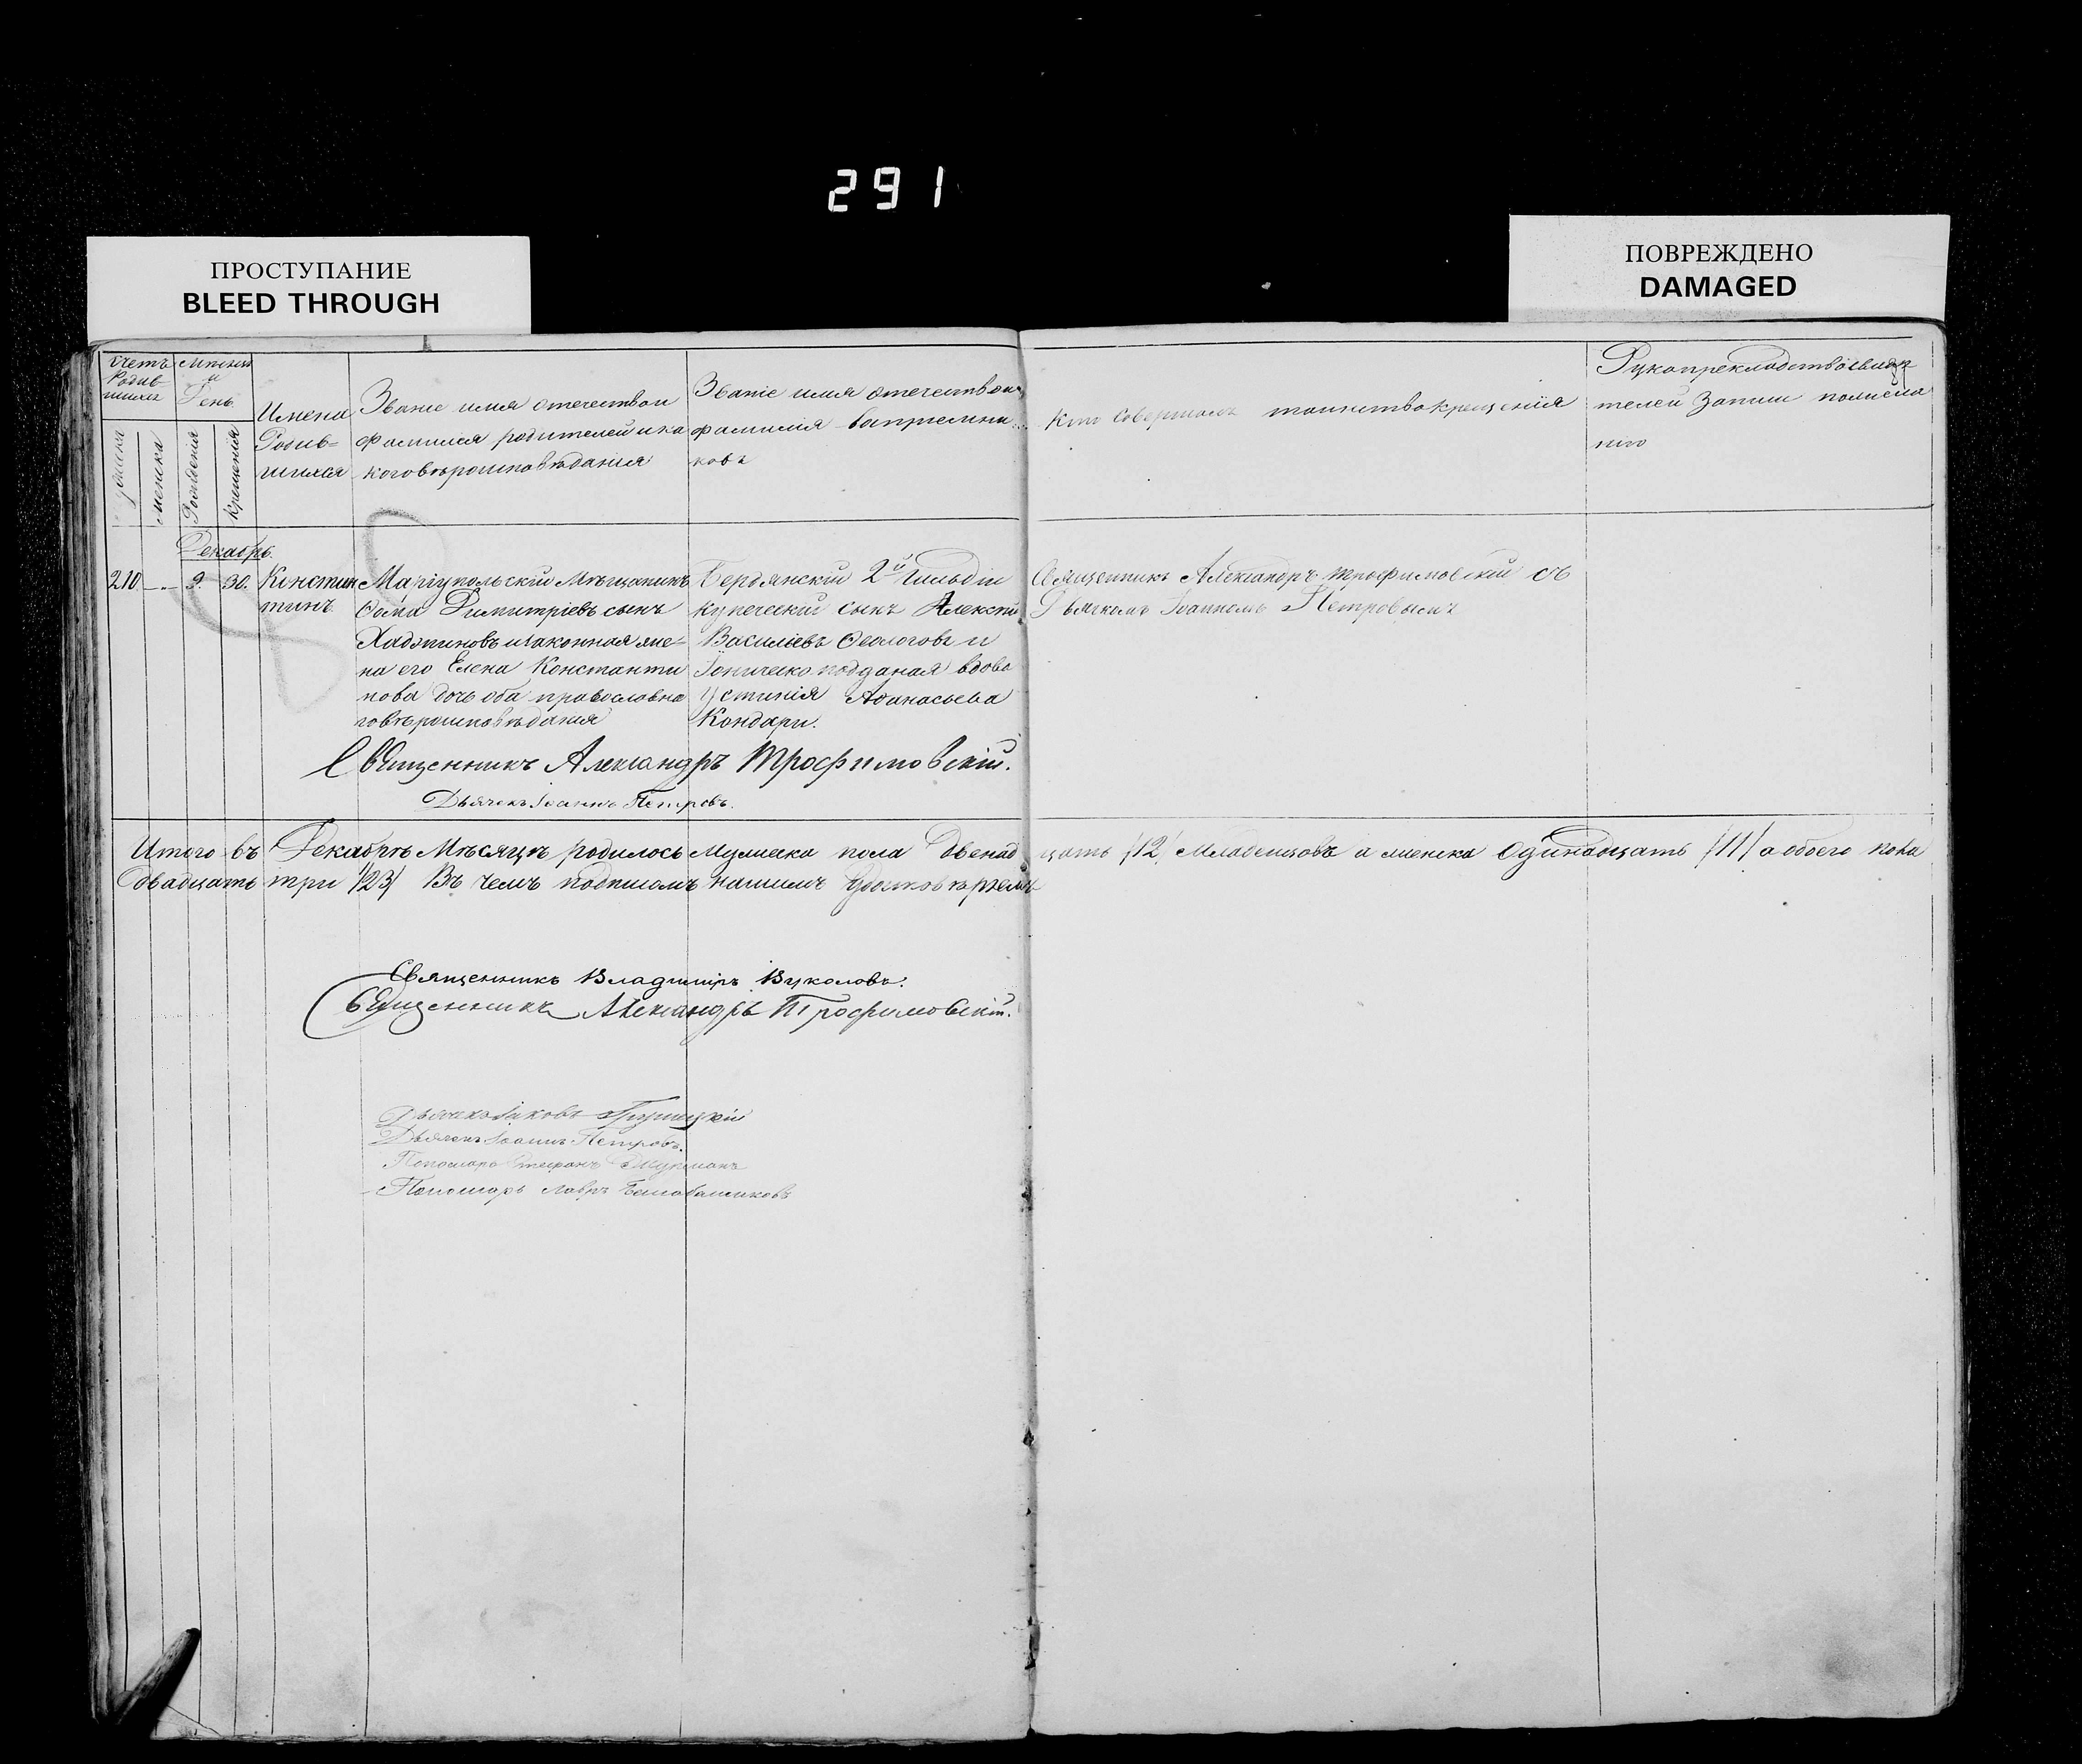 291
ПРОСТУПАНИЕ
BLEED THROUGH
ПОВРЕЖДЕНО
DAMAGED
Счетъ
Родив-
шихся
Мѣсяцъ
и
День.
мужеска
женска
Рожденія
Крещенія
Имена
Родив=
шихся
Званіе имя отечество и
фамилія родителей и ка
коговѣроисповѣданія
Званіе имя отечество и
фамилія воспріемни
ковъ
Кто совершалъ таинство крещенія
Рукопрекладство свидѣ
телей записи
Декабрь.
210 - „ - 9. 30. Констан
тинъ
Маріупольскій Мѣщанинъ
Ѳома Димитріевъ сынъ
Хаджиновъ и законная же=
на его Елена Константи
нова дочь оба православна
говѣроисповѣданія
Бердянскій 2й Гильдіи
купеческій сынъ Алексѣй
Василіевъ Ѳеологовъ и
Іоническо подданая вдова
Устинія Аѳанасьева
Кондари.
Священникъ Александръ Трофимовскій съ
Дьячкомъ Іоанномъ Петровымъ
Священникъ Александръ Трофимовскій.
Дьячекъ Іоаннъ Петровъ.
Итого въ Декабрѣ Мѣсяцѣ родилось Мужеска пола Двенад цать /12/ Младенцовъ а женска Одинадцать /11/ а обоего пола
Двадцать три /23/ Въ чемъ подписомъ нашимъ удостовѣряемъ
Священникъ Владимиръ Вуколовъ.
Священникъ Александръ Трофимовскій.
Дьячекъ Іаковъ
Дьячекъ Іоаннъ Петровъ.
Пономарь Стефанъ
Пономарь Лавръ